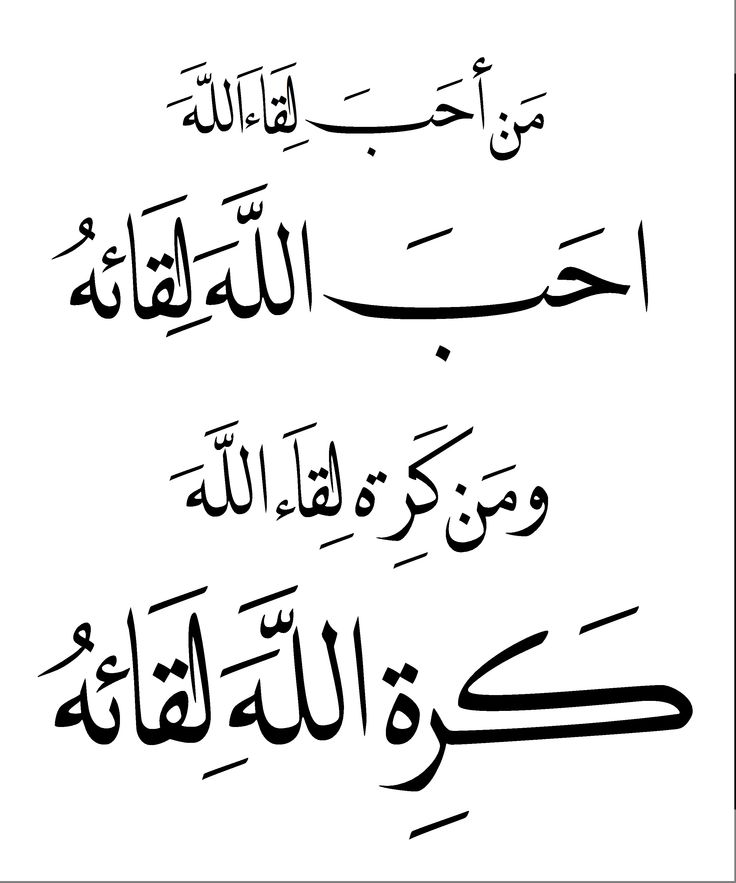 مَن أَحَبَ لِقَاءَ اللَّهَ
احَبَ اللَّهَ لِقَائهُ
ومَن كَرِة لِقِاَء اللَّهَ
كَرِة اللَّهَ لِقَائهُ